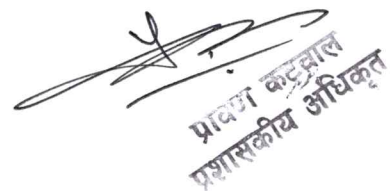 प्रावण कटुवाल
प्रशासकीय अधिकृत